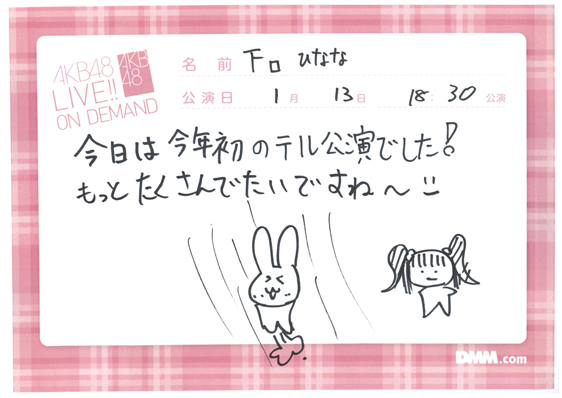 AKB48
LIVE!!
ON DEMAND
AKB
48
名前 下口 ひなな
公演日 1月 13日 18:30公演
今日は今年初のテル公演でした!
もっとたくさんでたいですね〜
DMM.com